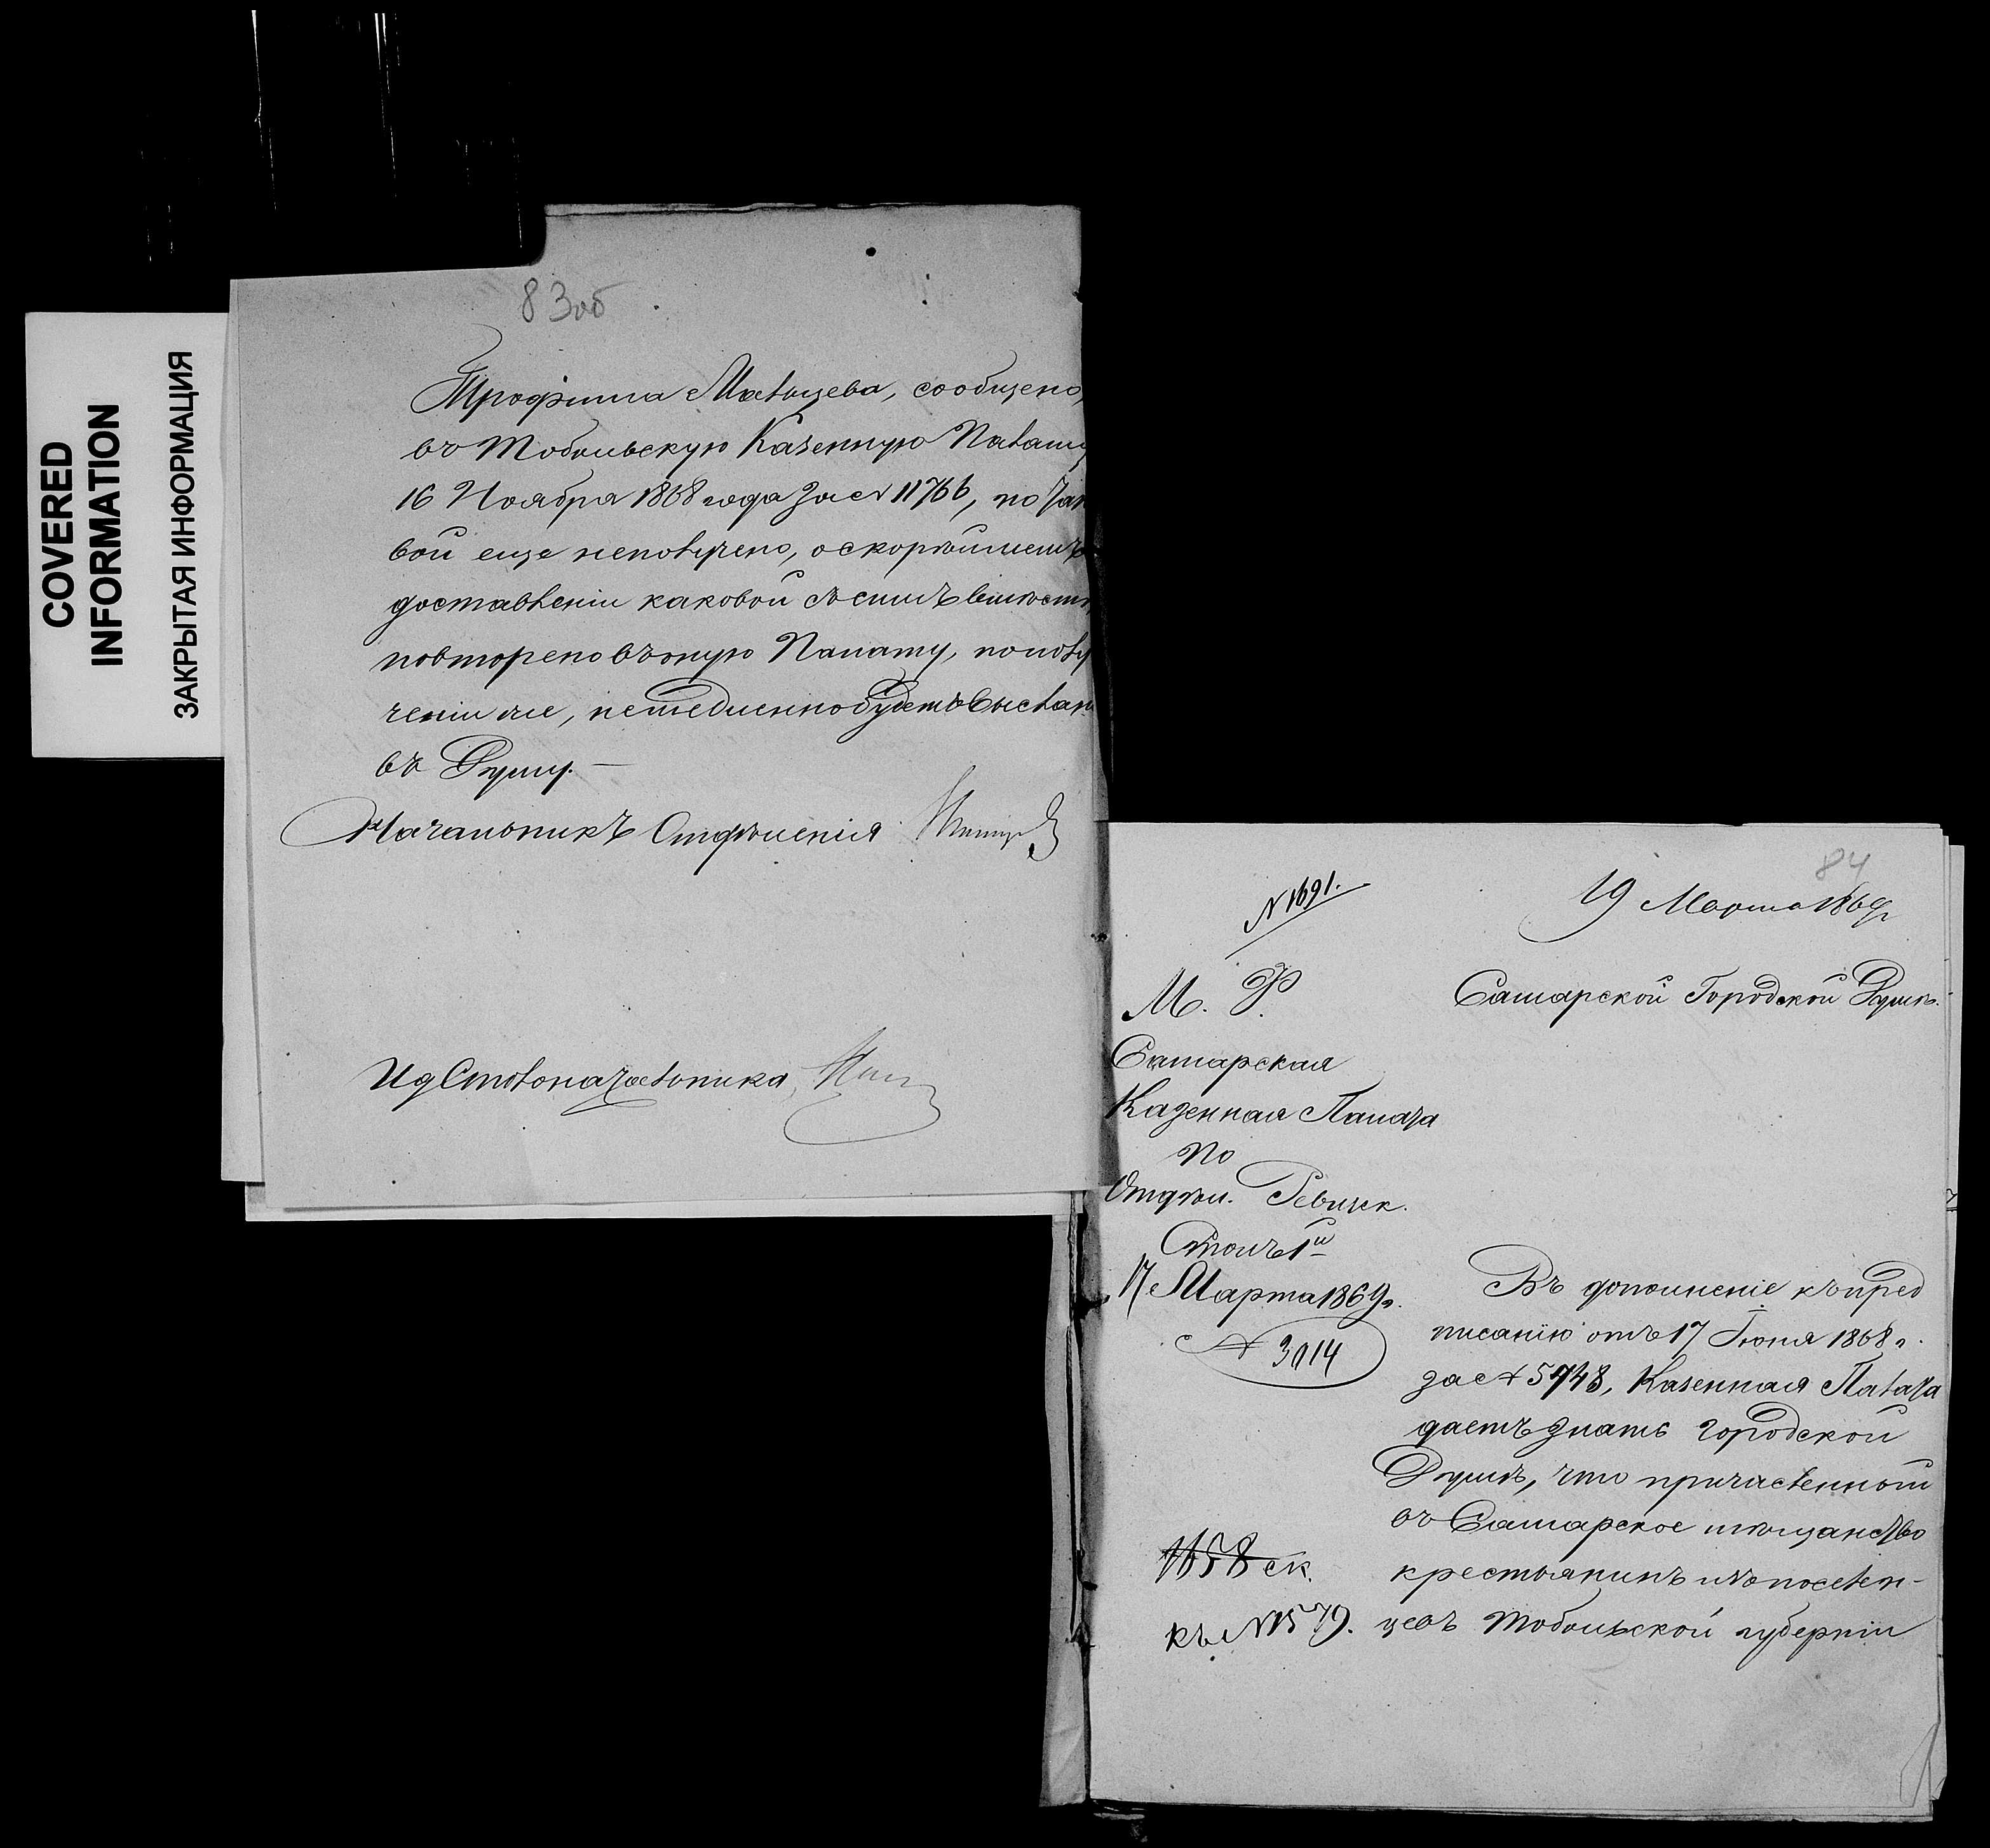 COVERED
INFORMATION
ЗАКРЫТАЯ ИНФОРМАЦИЯ
83об
Трофима Мальцева, сообщено,
въ Тобольскую Казенную Палату
16 Ноября 1868 года за № 11766, но
вой еще неполучено, о скорѣйшемъ
доставленіи каковой съ симъ вмѣстѣ
повторено въ оную Палату, по полу
ченіи же, немедленно будетъ выслан
въ Думу. —
Начальникъ Отдѣленія
Ид Столоначальника
84
№ 1691.
19 Марта 1869
М. Ф.
Самарская
Казенная Палата
по
Отдѣл. Ревизск.
Столъ 1й
17 Марта 1869 г.
№ 3014
1658 ск.
къ № 1579.
Самарской Городской Думѣ.
Въ дополненіе къ пред
писанію отъ 17 Іюня 1868 г.
за № 5748, Казенная Палата
даетъ знать Городской
Думѣ, что причисленный
въ Самарское мѣщанство
крестьянинъ изъ поселен-
цевъ Тобольской губерніи